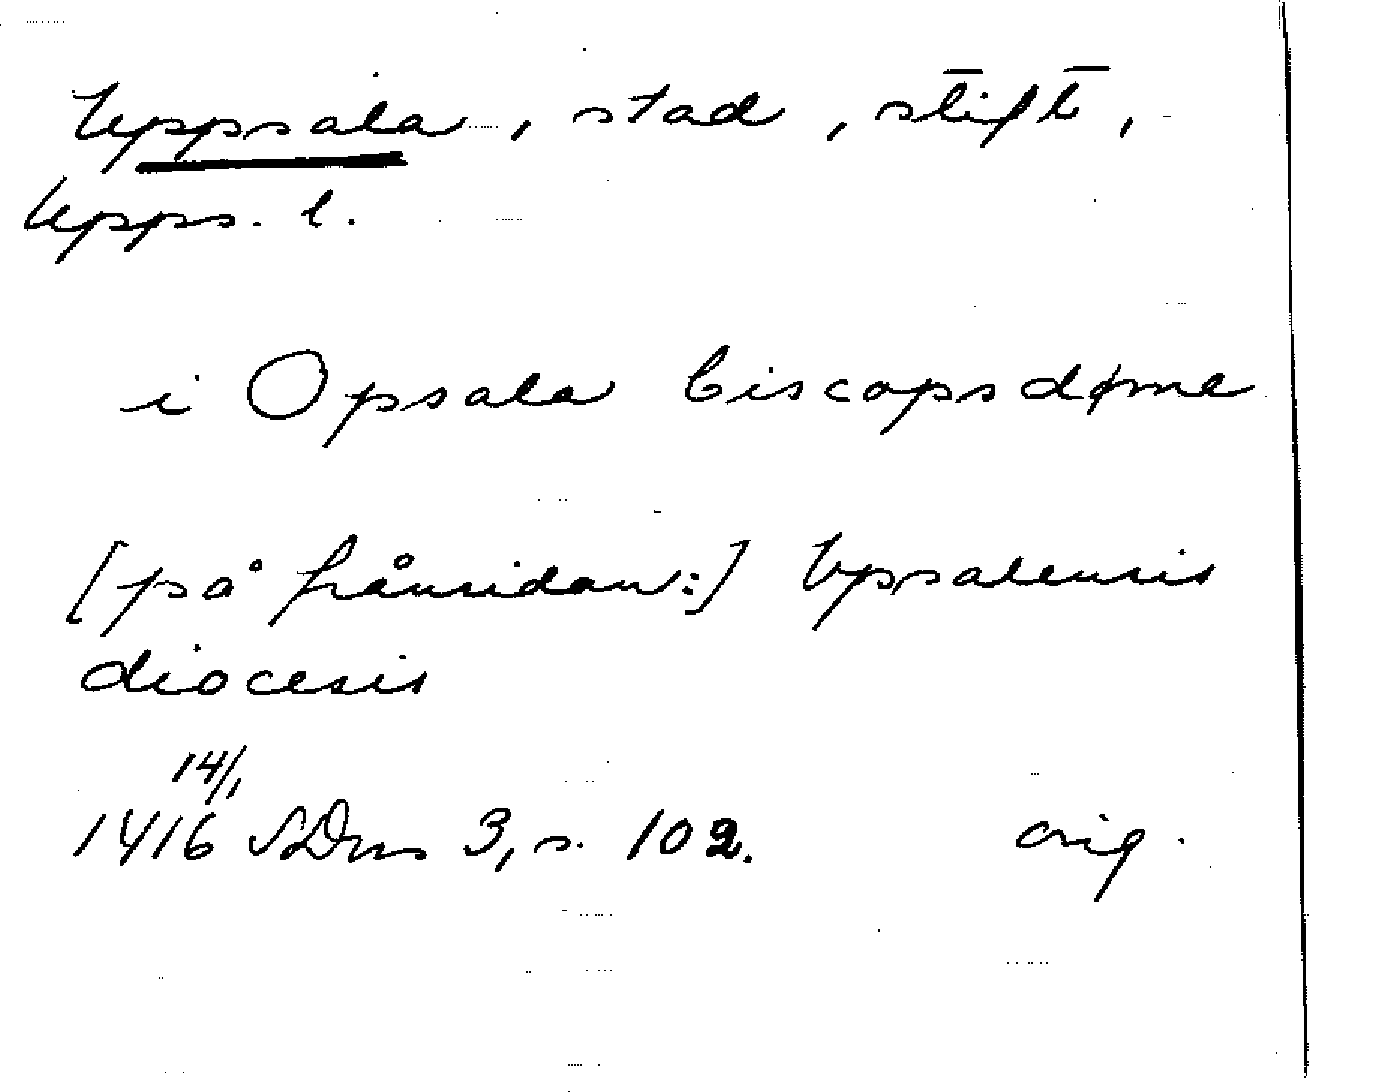 Uppsala, stad, stift,
Upps. l.
i Opsala biscopsdøme
[på frånsidan:] Vpsalensis
diocesis
14/1
1416 SDns 3, s. 102. orig.